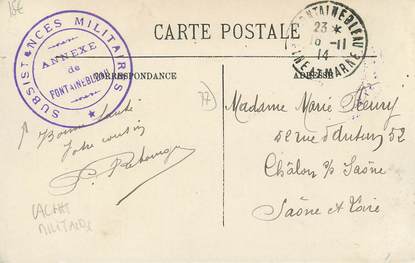 16€
CARTE POSTALE
SUBSISTANCES MILITAIRES
ANNEXE
de
FONTAINEBLEAU
FONTAINEBLEAU
23 *
18 -11
14
NE-ET-MARNE
CORRESPONDANCE
ADRESSE
77)
Bonne santé
Votre cousin
Madame Marie Fleury
52 rue d'Autun 52
Châlon s/ Saône
Saône et Loire
CACHET
MILITAIRE